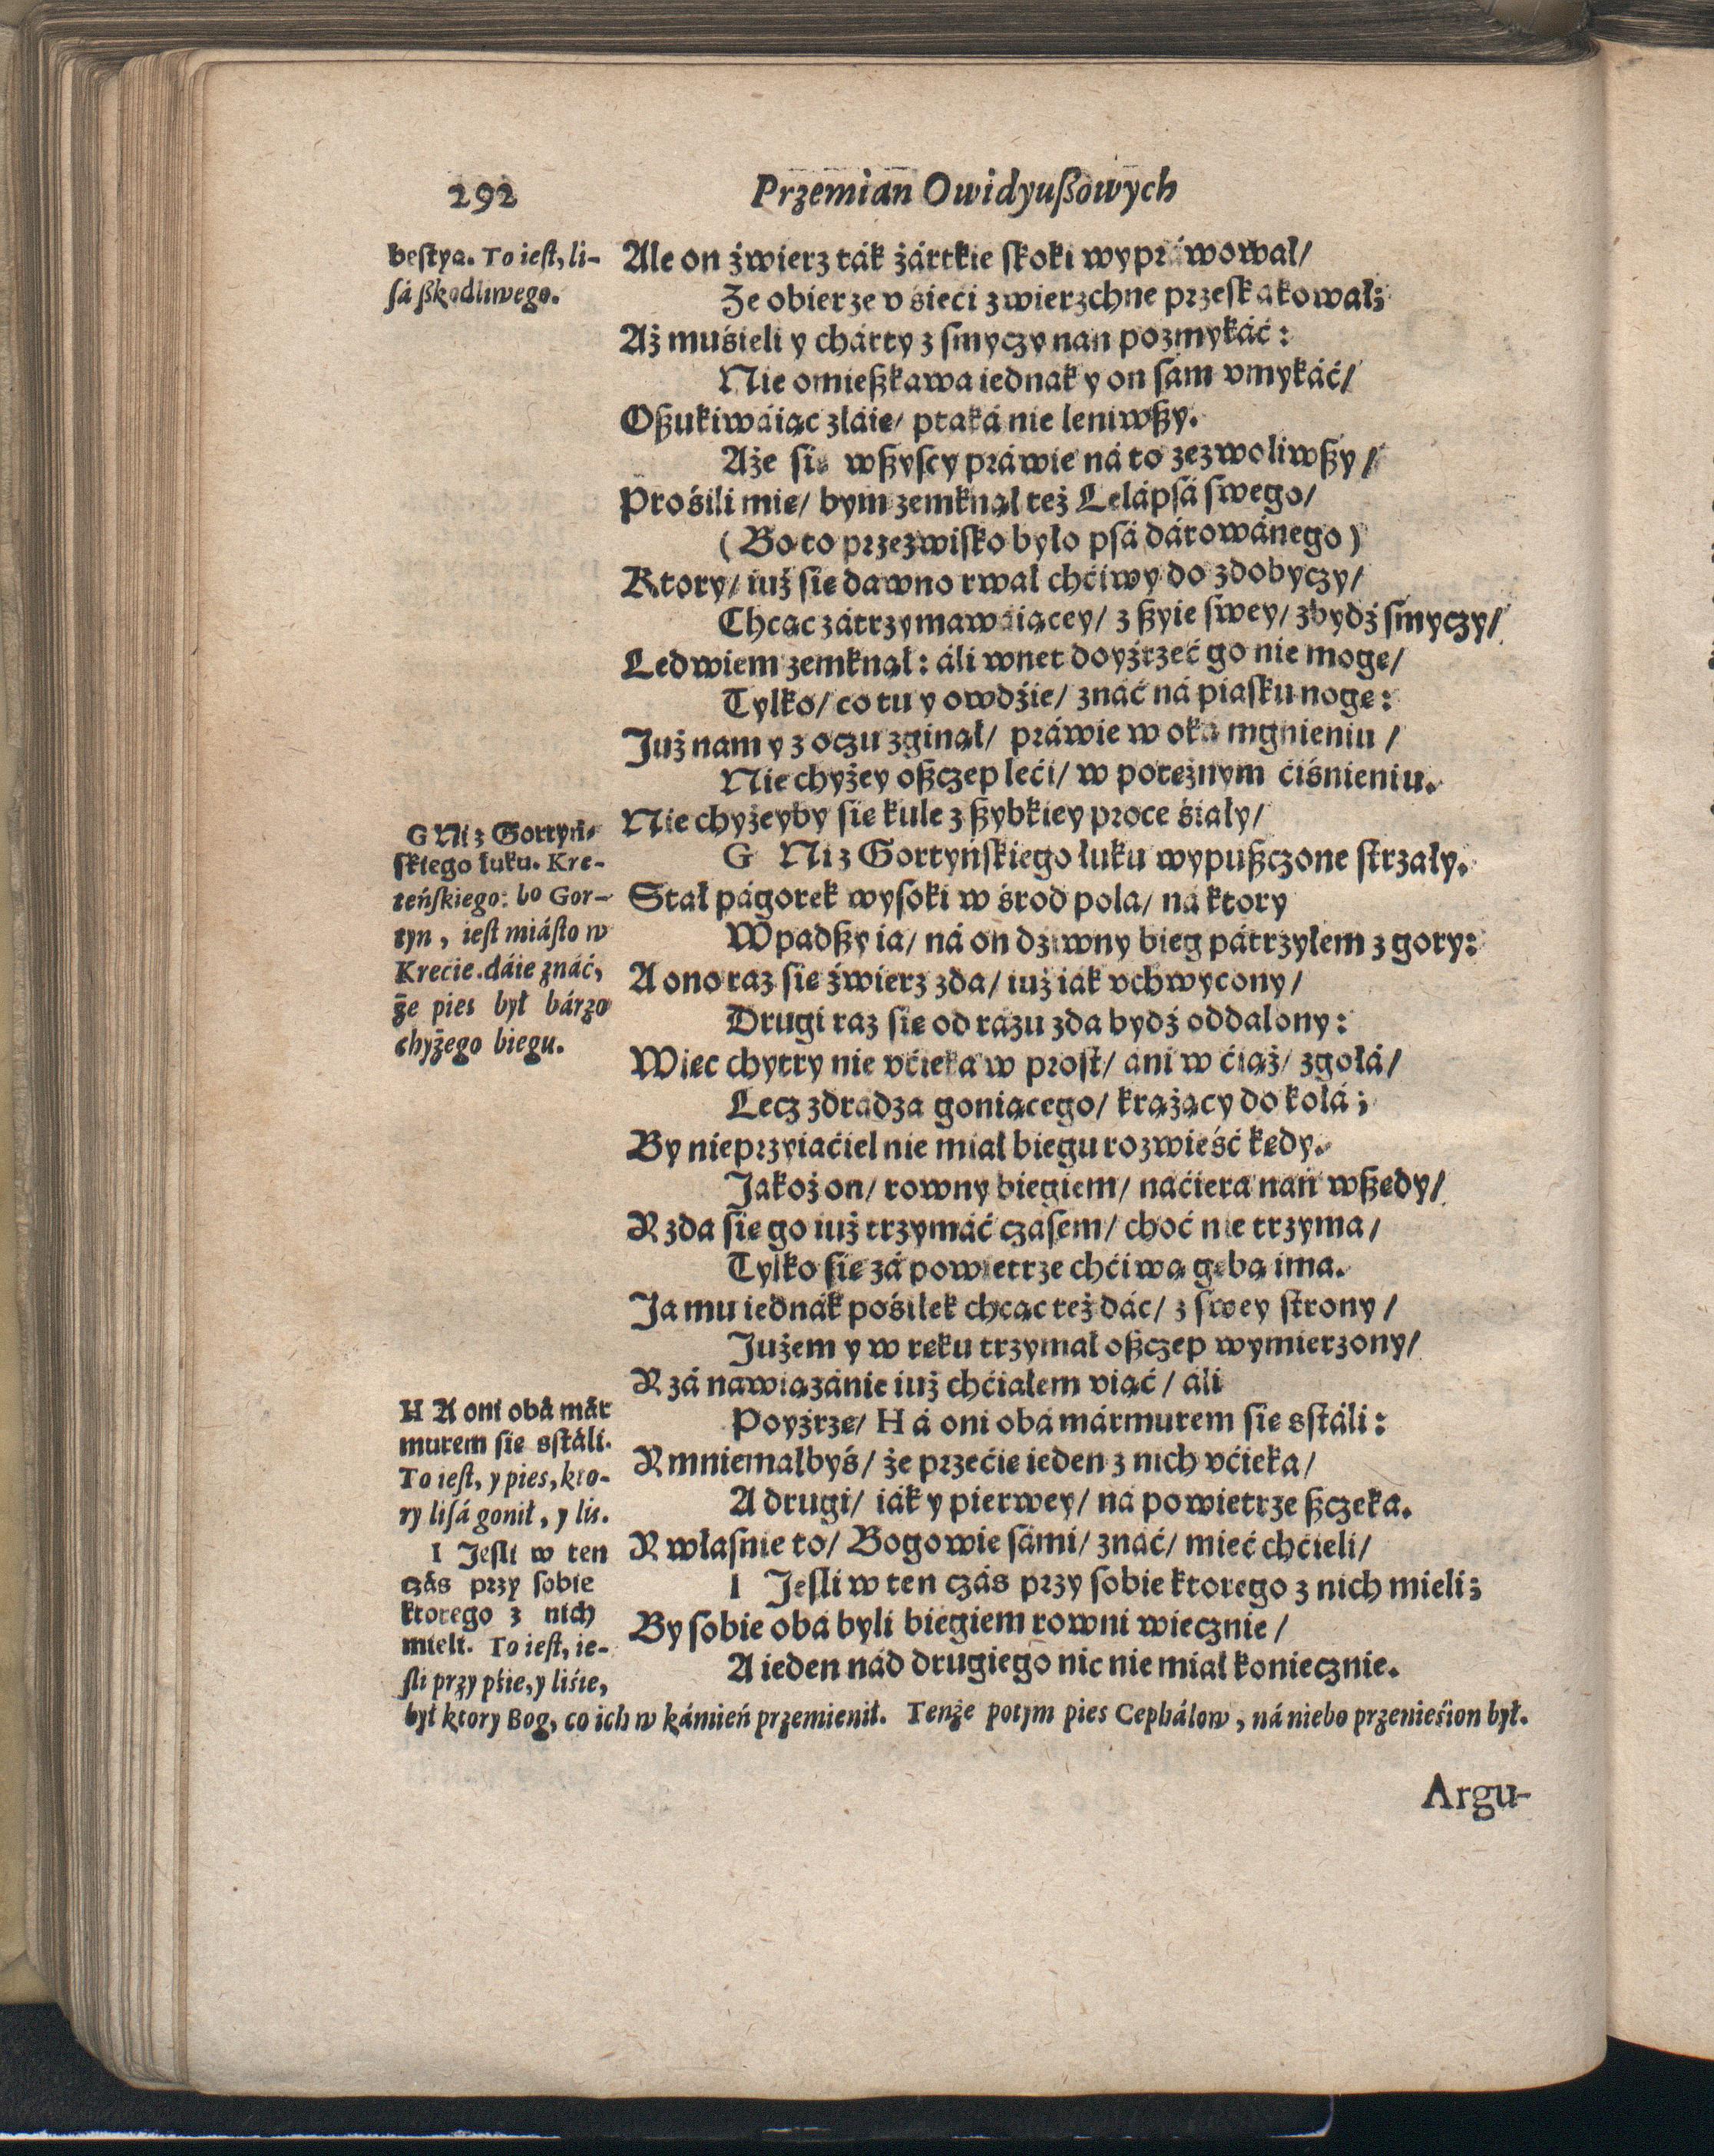 292
Przemian Owidyußowych
bestya. To iest, li-
sá ßkodliwego.
Ale on źwierz ták żártkie skoki wypráwował/
Że obierze v sieci zwierzchne przeskakował;
Aż muśieli y chárty z smyczy nan pozmykáć:
Nie omießkawa iednak y on sam vmykáć/
Oßukiwáiąc zláie/ ptaká nie leniwßy.
Aże się wßyscy práwie ná to zezwoliwßy/
Prośili mię/ bym zemknął też Lelápsá swego/
(Bo to przezwisko było psá dárowánego)
Ktory/ iuż się dawno rwał chćiwy do zdobyczy/
Chcąc zátrzymawáiącey/ z ßyie swey/ zbydź smyczy/
Ledwiem zemknął: áli wnet doyźrzeć go nie mogę/
Tylko/ co tu y owdźie/ znáć ná piasku nogę:
Już nam y z oczu zginął/ práwie w oka mgnieniu/
Nie chyżey oßczep leći/ w potężnym ćiśnieniu.
Nie chyżeyby się kule z ßybkiey proce śiały/
G Ni z Gortyńskiego łuku wypußczone strzały.
G Ni z Gortyń-
skiego łuku. Kre-
teńskiego: bo Gor-
tyn, iest miásto w
Krećie. dáie znáć,
że pies był bárzo
chyżego biegu.
Stał págorek wysoki w środ pola/ na ktory
Wpadßy ia/ ná on dziwny bieg pátrzyłem z gory:
A ono raz się źwierz zda/ iuż iák vchwycony/
Drugi raz się od rázu zda bydź oddalony:
Więc chytry nie vćieka w prost/ áni w ćiąż/ zgołá/
Lecz zdradza goniącego/ krążący do kołá;
By nieprzyiaćiel nie miał biegu rozwieść kędy.
Jakoż on/ rowny biegiem/ naćiera nań wßędy/
Y zda się go iuż trzymáć czásem/ choć nie trzyma/
Tylko się zá powietrze chćiwą gębą ima.
Ja mu iednák pośilek chcąc też dáć/ z swey strony/
Jużem y w ręku trzymał oßczep wymierzony/
Y zá nawiązánie iuż chćiałem viąć/ áli
Poyźrzę/ H á oni obá mármurem się sstáli:
H A oni obá már
murem się sstáli.
To iest, y pies, kto-
ry lisá gonił, y lis.
Y mniemałbyś/ że przećię ieden z nich vćieka/
A drugi/ iák y pierwey/ ná powietrze ßczeka.
Y własnie to/ Bogowie sámi/ znáć/ mieć chćieli/
I Jesli w ten czás przy sobie ktorego z nich mieli;
By sobie obá byli biegiem rowni wiecznie/
A ieden nád drugiego nic nie miał koniecznie.
I Jesli w ten
czás przy sobie
ktorego z nich
mieli. To iest, ie-
sli przy pśie, y liśie,
był ktory Bog, co ich w kámień przemienił. Tenże potym pies Cephálow, ná niebo przenieśion był.
Argu-